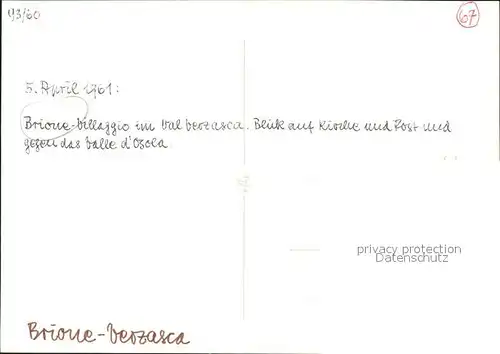 93/60
67
5. April 1961:
Brione-Villaggio im Val Verzasca. Blick auf Kirche und Post und
gegen das Valle d'Osola
privacy protection
Datenschutz
Brione-Verzasca